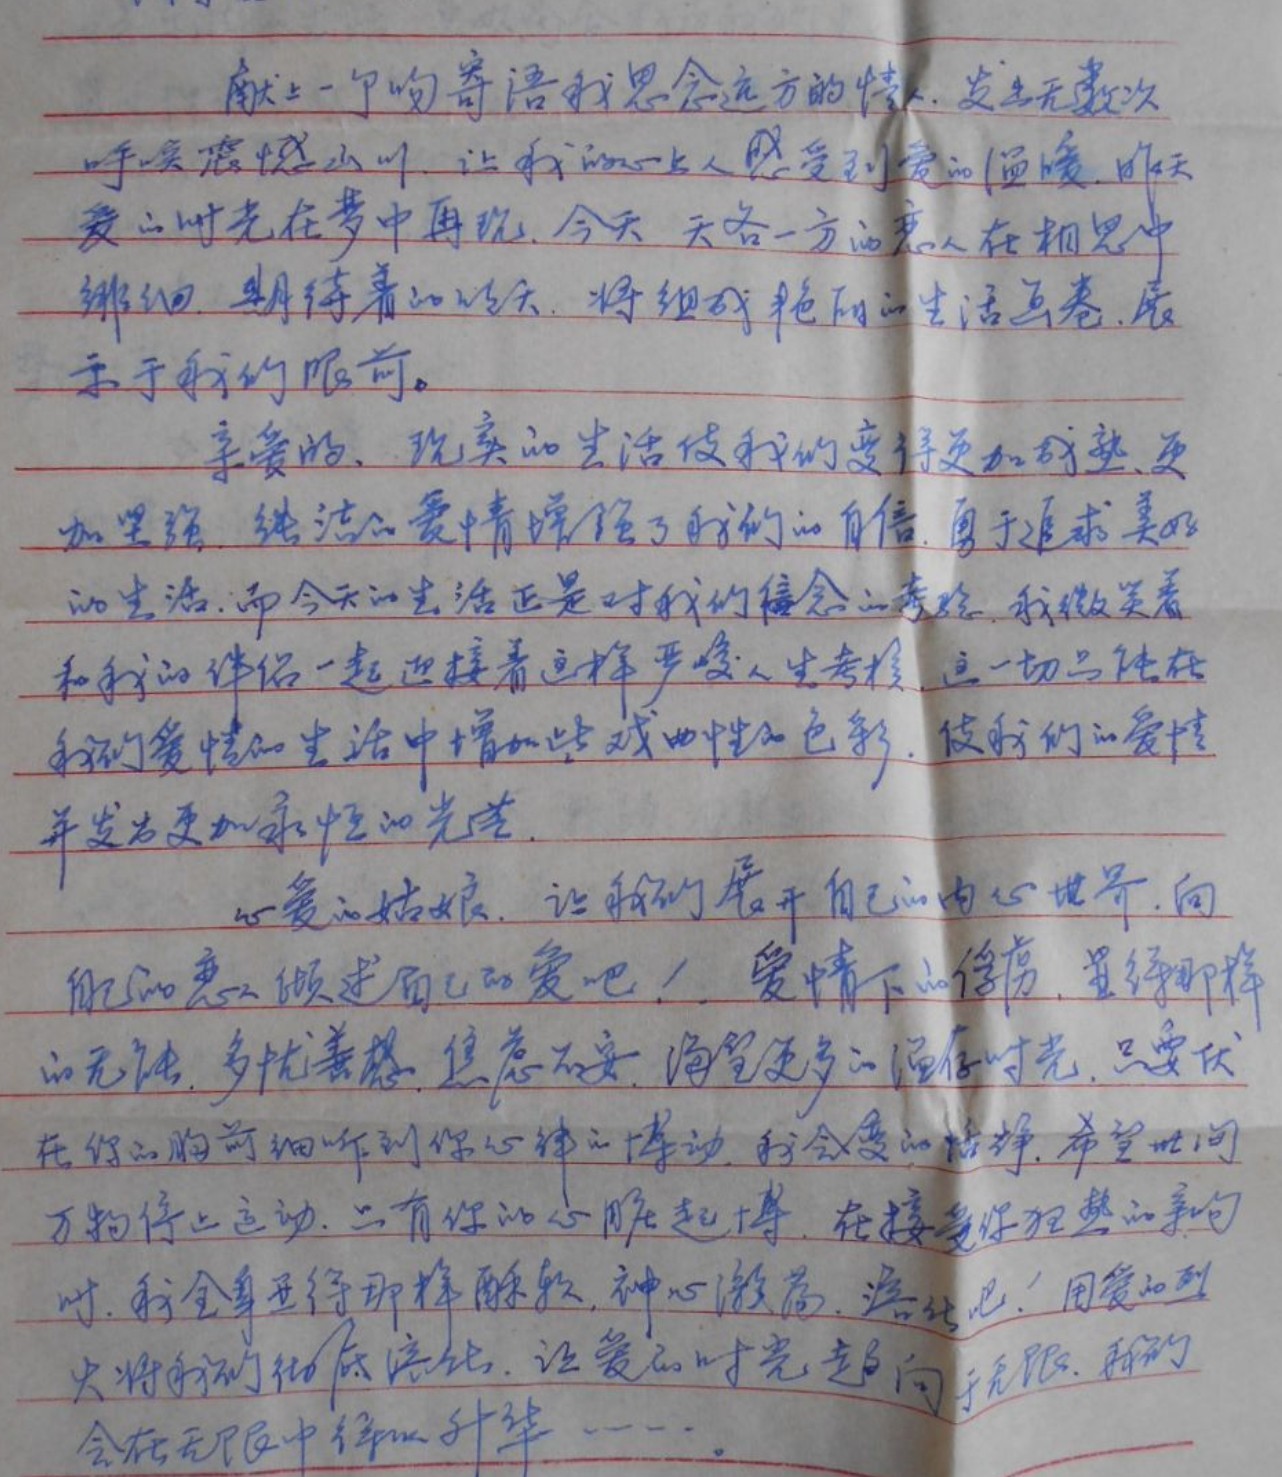 献上一个吻寄语我思念远方的情人.发出无数次
呼唤震憾山川.让我的心上人感受到爱的温暖.昨天
爱的时光在梦中再现.今天 天各一方的恋人在相思中
期待着的明天.将组成艳丽的生活画卷.展
示于我们眼前。
亲爱的、现实的生活使我们变得更加成熟、更
加坚强.纯洁的爱情增强了我们的自信.勇于追求美好
的生活.而今天的生活正是对我们信念的考验.我微笑着
和我的伴侣一起迎接着这样严峻人生考核.这一切只能在
我们爱情的生活中增加些戏曲性的色彩.使我们的爱情
并发出更加永恒的光芒.
心爱的姑娘.让我们展开自己的内心世界.向
自己的恋人倾述自己的爱吧！.爱情下的俘虏.显得那样
的无能.多忧善感.焦虑不安.渴望更多的温存时光.只要伏
在你的胸前细听到你心律的博动.我会变的恬静.希望世间
万物停止运动.只有你的心脏起博.在接受你狂热的亲吻
时.我全身显得那样酥软.神心激荡.溶化吧！用爱的烈
火将我们彻底溶化.让爱的时光趋向于无限.我们
会在无限中得以升华-----。